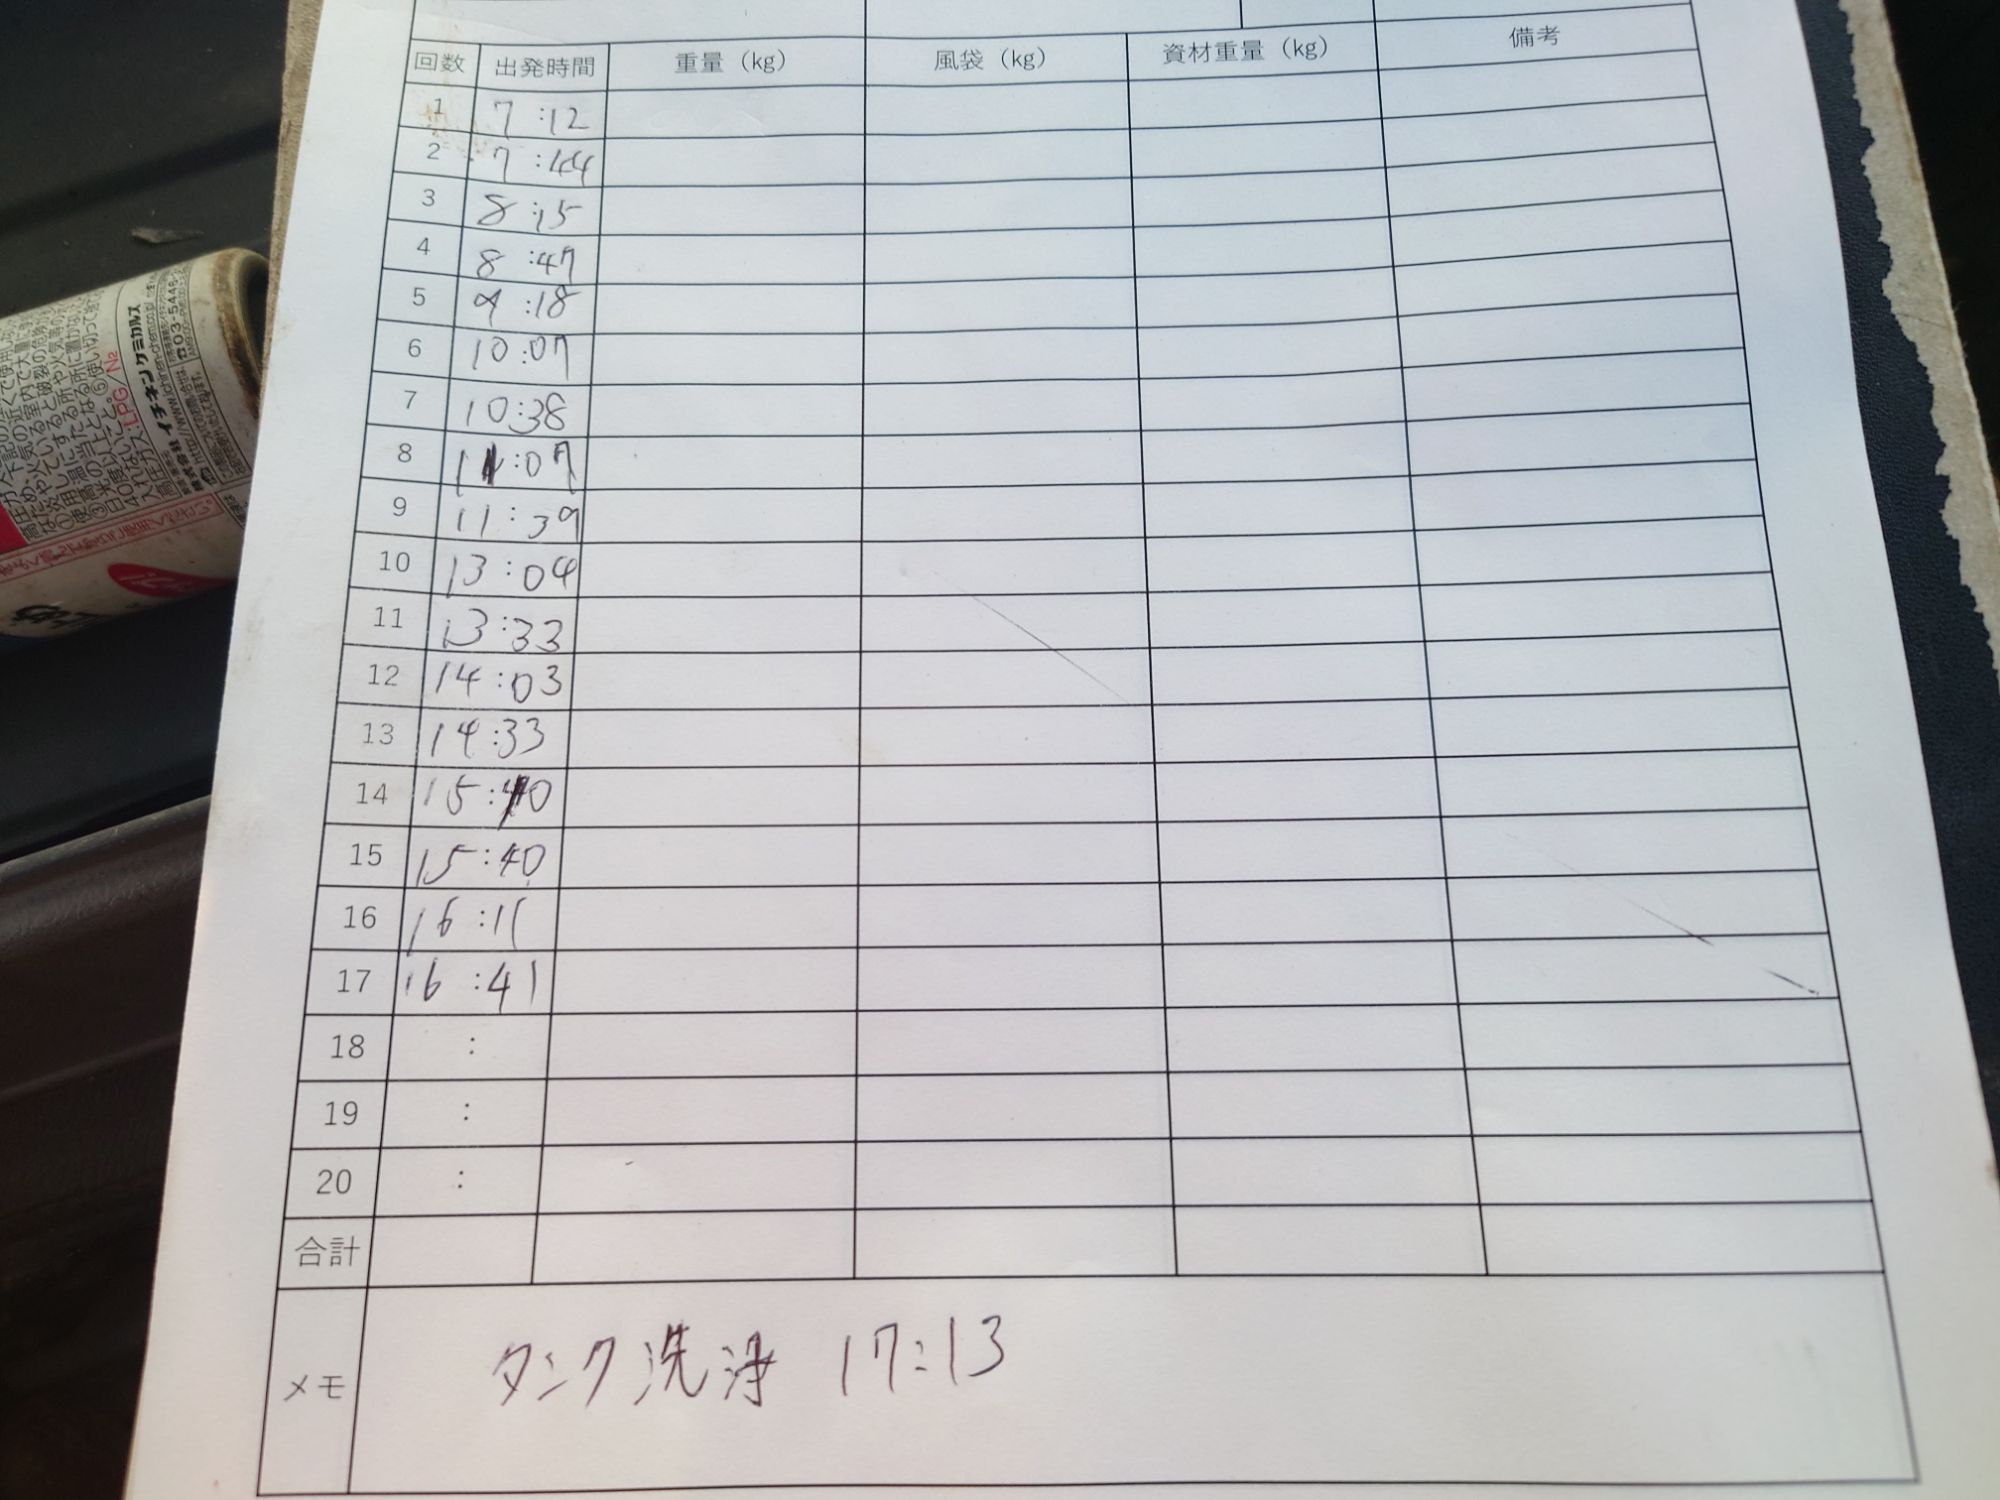 回数 出発時間 重量（kg） 風袋（kg） 資材重量（kg） 備考
1 7:12
2 7:44
3 8:15
4 8:47
5 9:18
6 10:07
7 10:38
8 11:07
9 11:39
10 13:04
11 13:33
12 14:03
13 14:33
14 15:10
15 15:40
16 16:11
17 16:41
18 :
19 :
20 :
合計
メモ タンク洗浄 17:13
株式会社 イチネンケミカルズ
高圧ガス:LPG/N₂